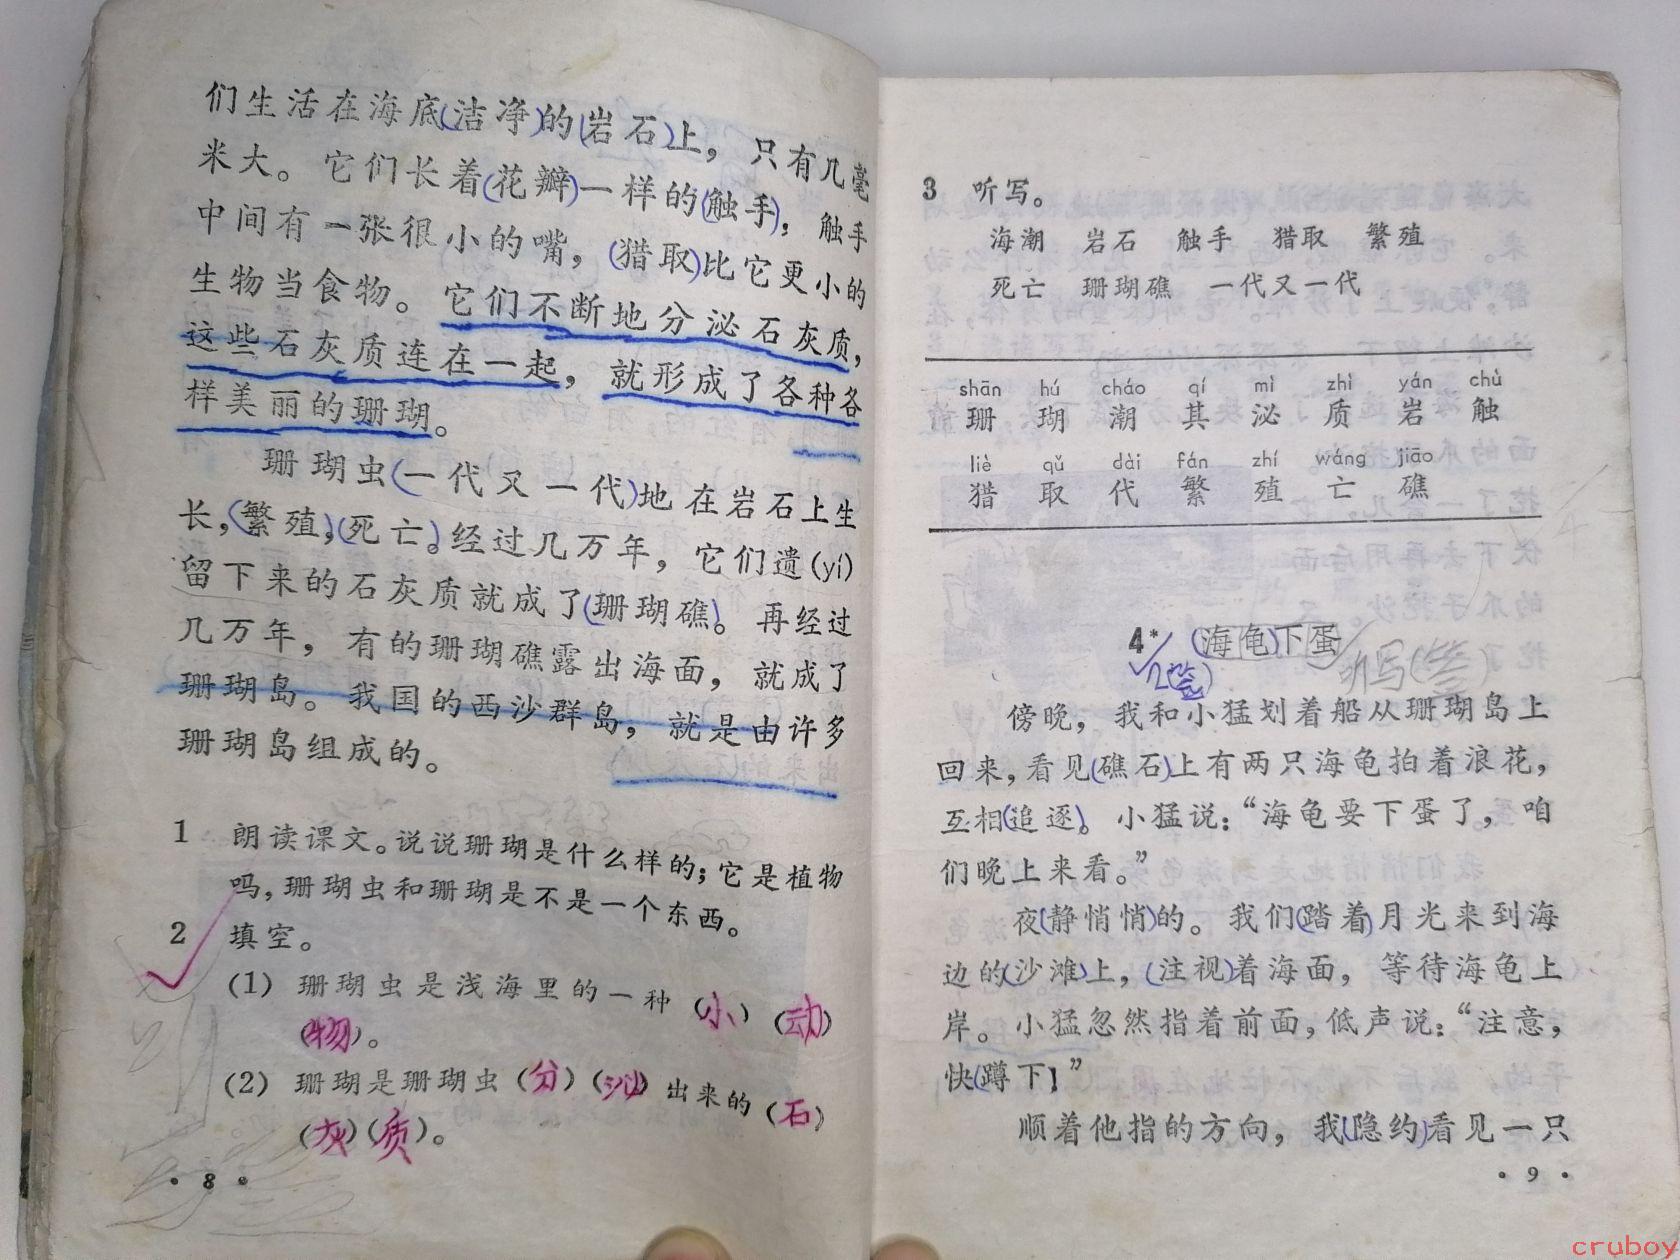 们生活在海底(洁净)的(岩石)上，只有几毫
米大。它们长着(花瓣)一样的(触手)，触手
中间有一张很小的嘴，(猎取)比它更小的
生物当食物。它们不断地分泌石灰质，
这些石灰质连在一起，就形成了各种各
样美丽的珊瑚。
珊瑚虫(一代又一代)地在岩石上生
长，(繁殖)，(死亡)。经过几万年，它们遗(yí)
留下来的石灰质就成了(珊瑚礁)。再经过
几万年，有的珊瑚礁露出海面，就成了
珊瑚岛。我国的西沙群岛，就是由许多
珊瑚岛组成的。
1 朗读课文。说说珊瑚是什么样的；它是植物
吗，珊瑚虫和珊瑚是不是一个东西。
2 填空。
(1) 珊瑚虫是浅海里的一种(小)(动)
(物)。
(2) 珊瑚是珊瑚虫(分)(泌)出来的(石)
(灰)(质)。
· 8 ·
3 听写。
海潮 岩石 触手 猎取 繁殖
死亡 珊瑚礁 一代又一代
shān hú cháo qí mì zhì yán chù
珊 瑚 潮 其 泌 质 岩 触
liè qǔ dài fán zhí wáng jiāo
猎 取 代 繁 殖 亡 礁
4* (海龟)下蛋
听写
傍晚，我和小猛划着船从珊瑚岛上
回来，看见(礁石)上有两只海龟拍着浪花，
互相(追逐)。小猛说：“海龟要下蛋了，咱
们晚上来看。”
夜(静悄悄)的。我们(踏着)月光来到海
边的(沙滩)上，(注视)着海面，等待海龟上
岸。小猛忽然指着前面，低声说：“注意，
快(蹲下)！”
顺着他指的方向，我(隐约)看见一只
· 9 ·
cruboy